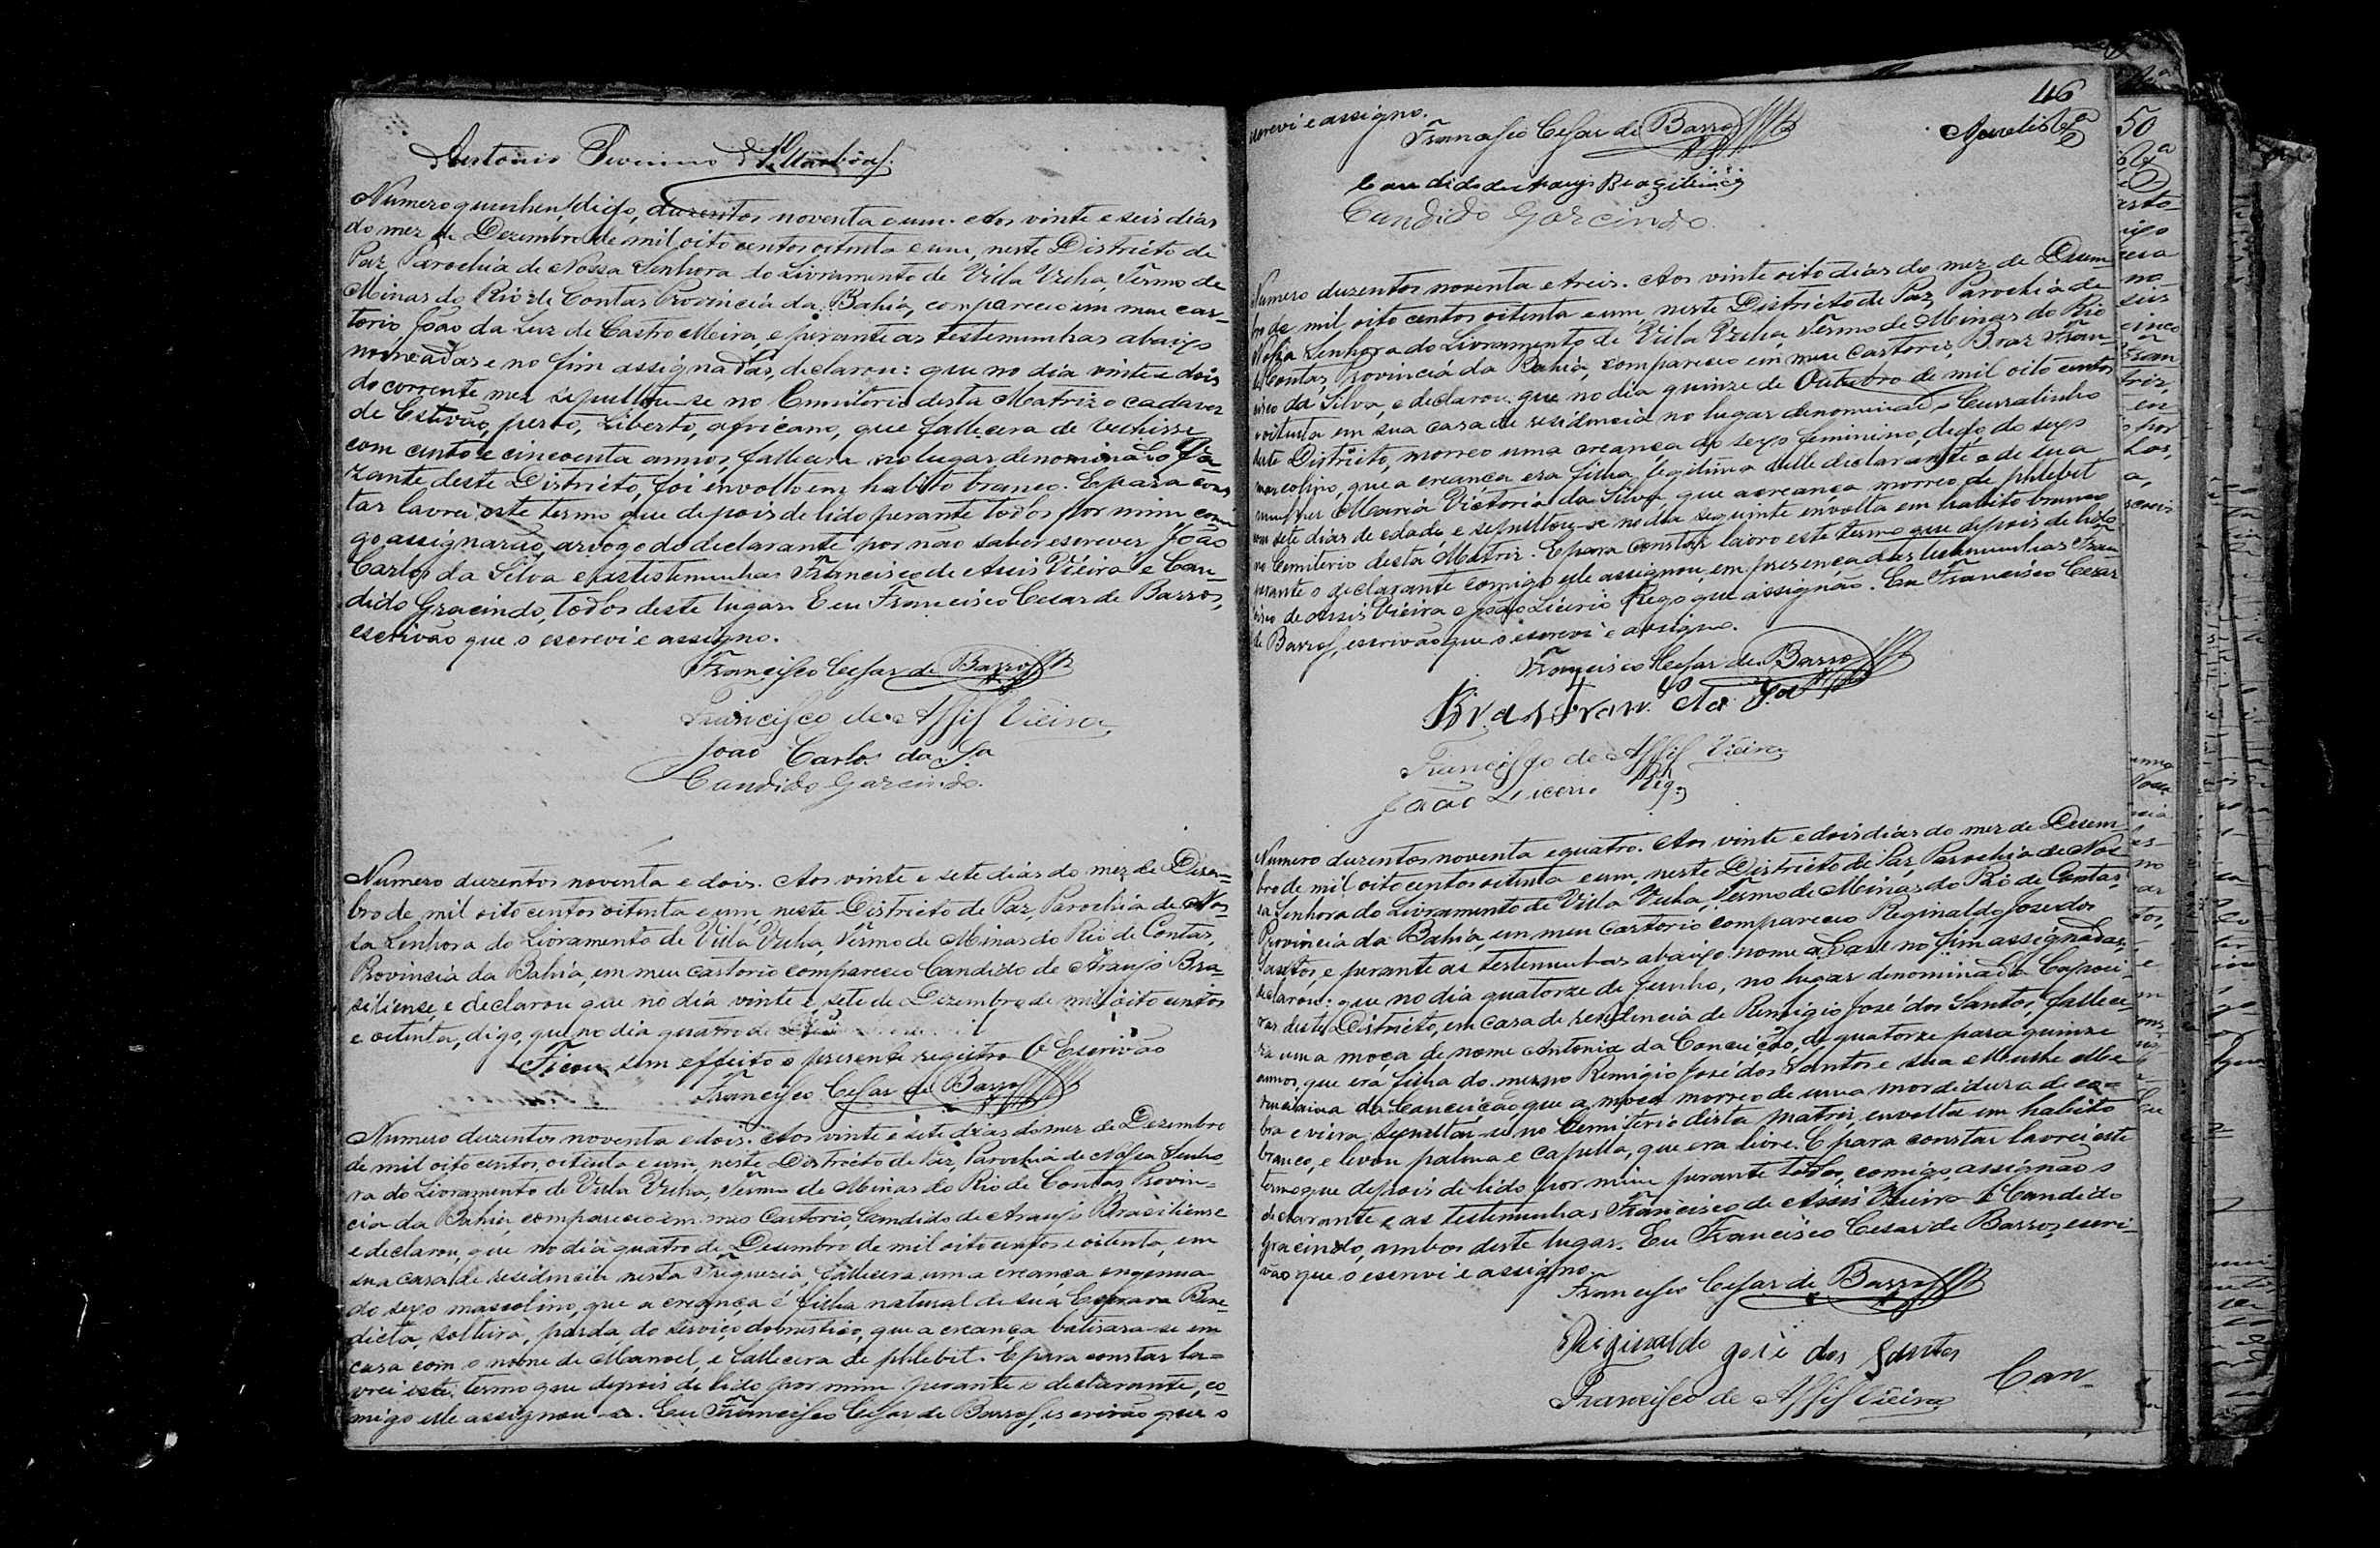 Antonio
Numero quinhen, digo, duzentos noventa e um. Aos vinte e seis dias
do mez de Dezembro de mil oito centos oitenta e um, neste Districto de
Paz, Parochia de Nossa Senhora do Livramento de Villa Velha, Termo de
Minas do Rio de Contas Provincia da Bahia, compareceu em meu car-
torio João da Luz de Castro Meira, e perante as testemunhas abaixo
nomeadas e no fim assignadas, declarou: que no dia vinte e dois
do corrente mez sepultou-se no Cemiterio desta Matriz o cadaver
de Estevão, preto, Liberto, africano, que fallecera de velhisse
com cento e cincoenta annos, fallecera no lugar denominado
zante deste Districto, foi envolto em habito branco. E para cons
tar lavrei este termo que depois de lido perante todos por mim comi
go assignarão, a rogo do declarante por não saber escrever João
Carlos da Silva e as testemunhas Francisco de Assis Vieira e Can-
dido Gracindo, todos deste lugar. E eu Francisco Cesar de Barros,
escrivão que o escrevi e assigno.
Francisco Cesar de Barros
Francisco de Assis Vieira
João Carlos da Sa
Candido Garcindo.
Numero duzentos noventa e dois. Aos vinte e sete dias do mez de Dezem-
bro de mil oito centos oitenta e um, neste Districto de Paz, Parochia de Nos-
sa Senhora do Livramento de Villa Velha, Termo de Minas do Rio de Contas,
Provincia da Bahia, em meu cartorio compareceo Candido de Araujo Bra-
siliense, e declarou que no dia vinte e sete de Dezembro de mil oito centos
e oitenta, digo, que no dia quatro de
Ficou sem effeito o presente registro. O Escrivão
Francisco Cesar de Barros
Numero duzentos noventa e dois. Aos vinte e sete dias do mez de Dezembro
de mil oito centos, oitenta e um, neste Districto de Paz, Parochia de Nossa Senho-
ra do Livramento de Villa Velha, Termo de Minas do Rio de Contas, Provin-
cia da Bahia, compareceo em meo Cartorio, Candido de Araujo Brasiliense
e declarou, que no dia quatro de Dezembro de mil oito centos e oitenta, em
sua casa de residencia nesta Freguezia, fallecera uma creança ingenua
do sexo masculino, que a creança é filha natural de sua Escrava Bene-
dicta, solteira, parda, do serviço domestico, que a creança batisara-se em
casa com o nome de Manoel, e fallecera de phlebit. E para constar la-
vrei este termo que depois de lido por mim perante o declarante, co-
migo elle assignou-o. Eu Francisco Cesar de Barros, escrivão que o
46
escrevi e assigno.
Francisco Cesar de Barros
Candido de Araujo Brazilience
Candido Garcindo.
Numero duzentos noventa e treis. Aos vinte oito dias do mez de Dezem-
bro de mil oito centos oitenta e um, neste Districto de Paz, Parochia de
Nossa Senhora do Livramento de Villa Velha, Termo de Minas do Rio
de Contas, Provincia da Bahia, compareceo em meu Cartorio, Braz Fran-
cisco da Silva, e declarou que no dia quinze de Outubro de mil oito centos
e oitenta em sua casa de residencia no lugar denominado Curralinho
deste Districto, morreo uma creança do sexo feminino, digo, do sexo
masculino, que a creança era filha legitima delle declarante e de sua
mulher Maria Victoria da Silva, que a creança morreo de phlebit
com sete dias de edade, e sepultou-se no dia seguinte envolta em habito branco
no Cemiterio desta Matriz. E para constar lavro este termo que depois de lido
perante o declarante comigo elle assignou, em presença das testemunhas Fran
cisco de Assis Vieira e João Licerio Rego que assignão. Eu Francisco Cesar
de Barros, escrivão que o escrevi e assigno.
Francisco Cesar de Barros
Bras Fran. da Sa
Francisco de Assis Vieira
João Licerio Rego
Numero duzentos noventa e quatro. Aos vinte e dois dias do mez de Dezem
bro de mil oito centos oitenta e um, neste Districto de Paz, Parochia de Nos
sa Senhora do Livramento de Villa Velha, Termo de Minas do Rio de Contas,
Provincia da Bahia, em meu cartorio compareceo Reginaldo José dos
Santos, e perante as testemunhas abaixo nomeadas e no fim assignadas,
declarou: que no dia quatorze de Junho, no lugar denominado
ras deste Districto, em casa de residencia de Remigio José dos Santos, fallece-
ra uma moça de nome Antonia da Conceição, de quatorze para quinze
annos, que era filha do mesmo Remigio José dos Santos e sua Mulher
da Conceição, que a moça morreo de uma mordidura de co-
bra e viera sepultar-se no Cemiterio desta matriz, envolta em habito
branco, e levou palma e capella, que era livre. E para constar lavrei este
termo que depois de lido por mim perante todos, comigo, assignão o
declarante e as testemunhas Francisco de Assis Vieira e Candido
Gracindo, ambos deste lugar. Eu Francisco Cesar de Barros, escri-
vão que o escrevi e assigno.
Francisco Cesar de Barros
Riginaldo José dos Santos
Francisco de Assis Vieira
Can-
50